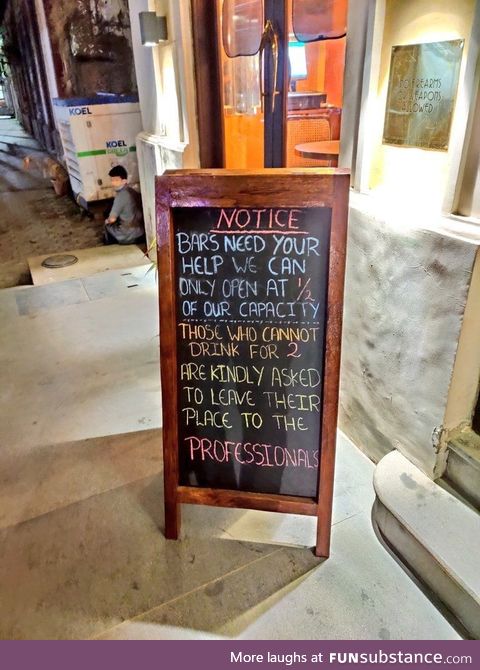 KOEL
KOEL
GREEN
NO FIREARMS
OR WEAPONS
ALLOWED
NOTICE
BARS NEED YOUR
HELP WE CAN
ONLY OPEN AT 1/2
OF OUR CAPACITY
THOSE WHO CANNOT
DRINK FOR 2
ARE KINDLY ASKED
TO LEAVE THEIR
PLACE TO THE
PROFESSIONALS
More laughs at FUNsubstance.com